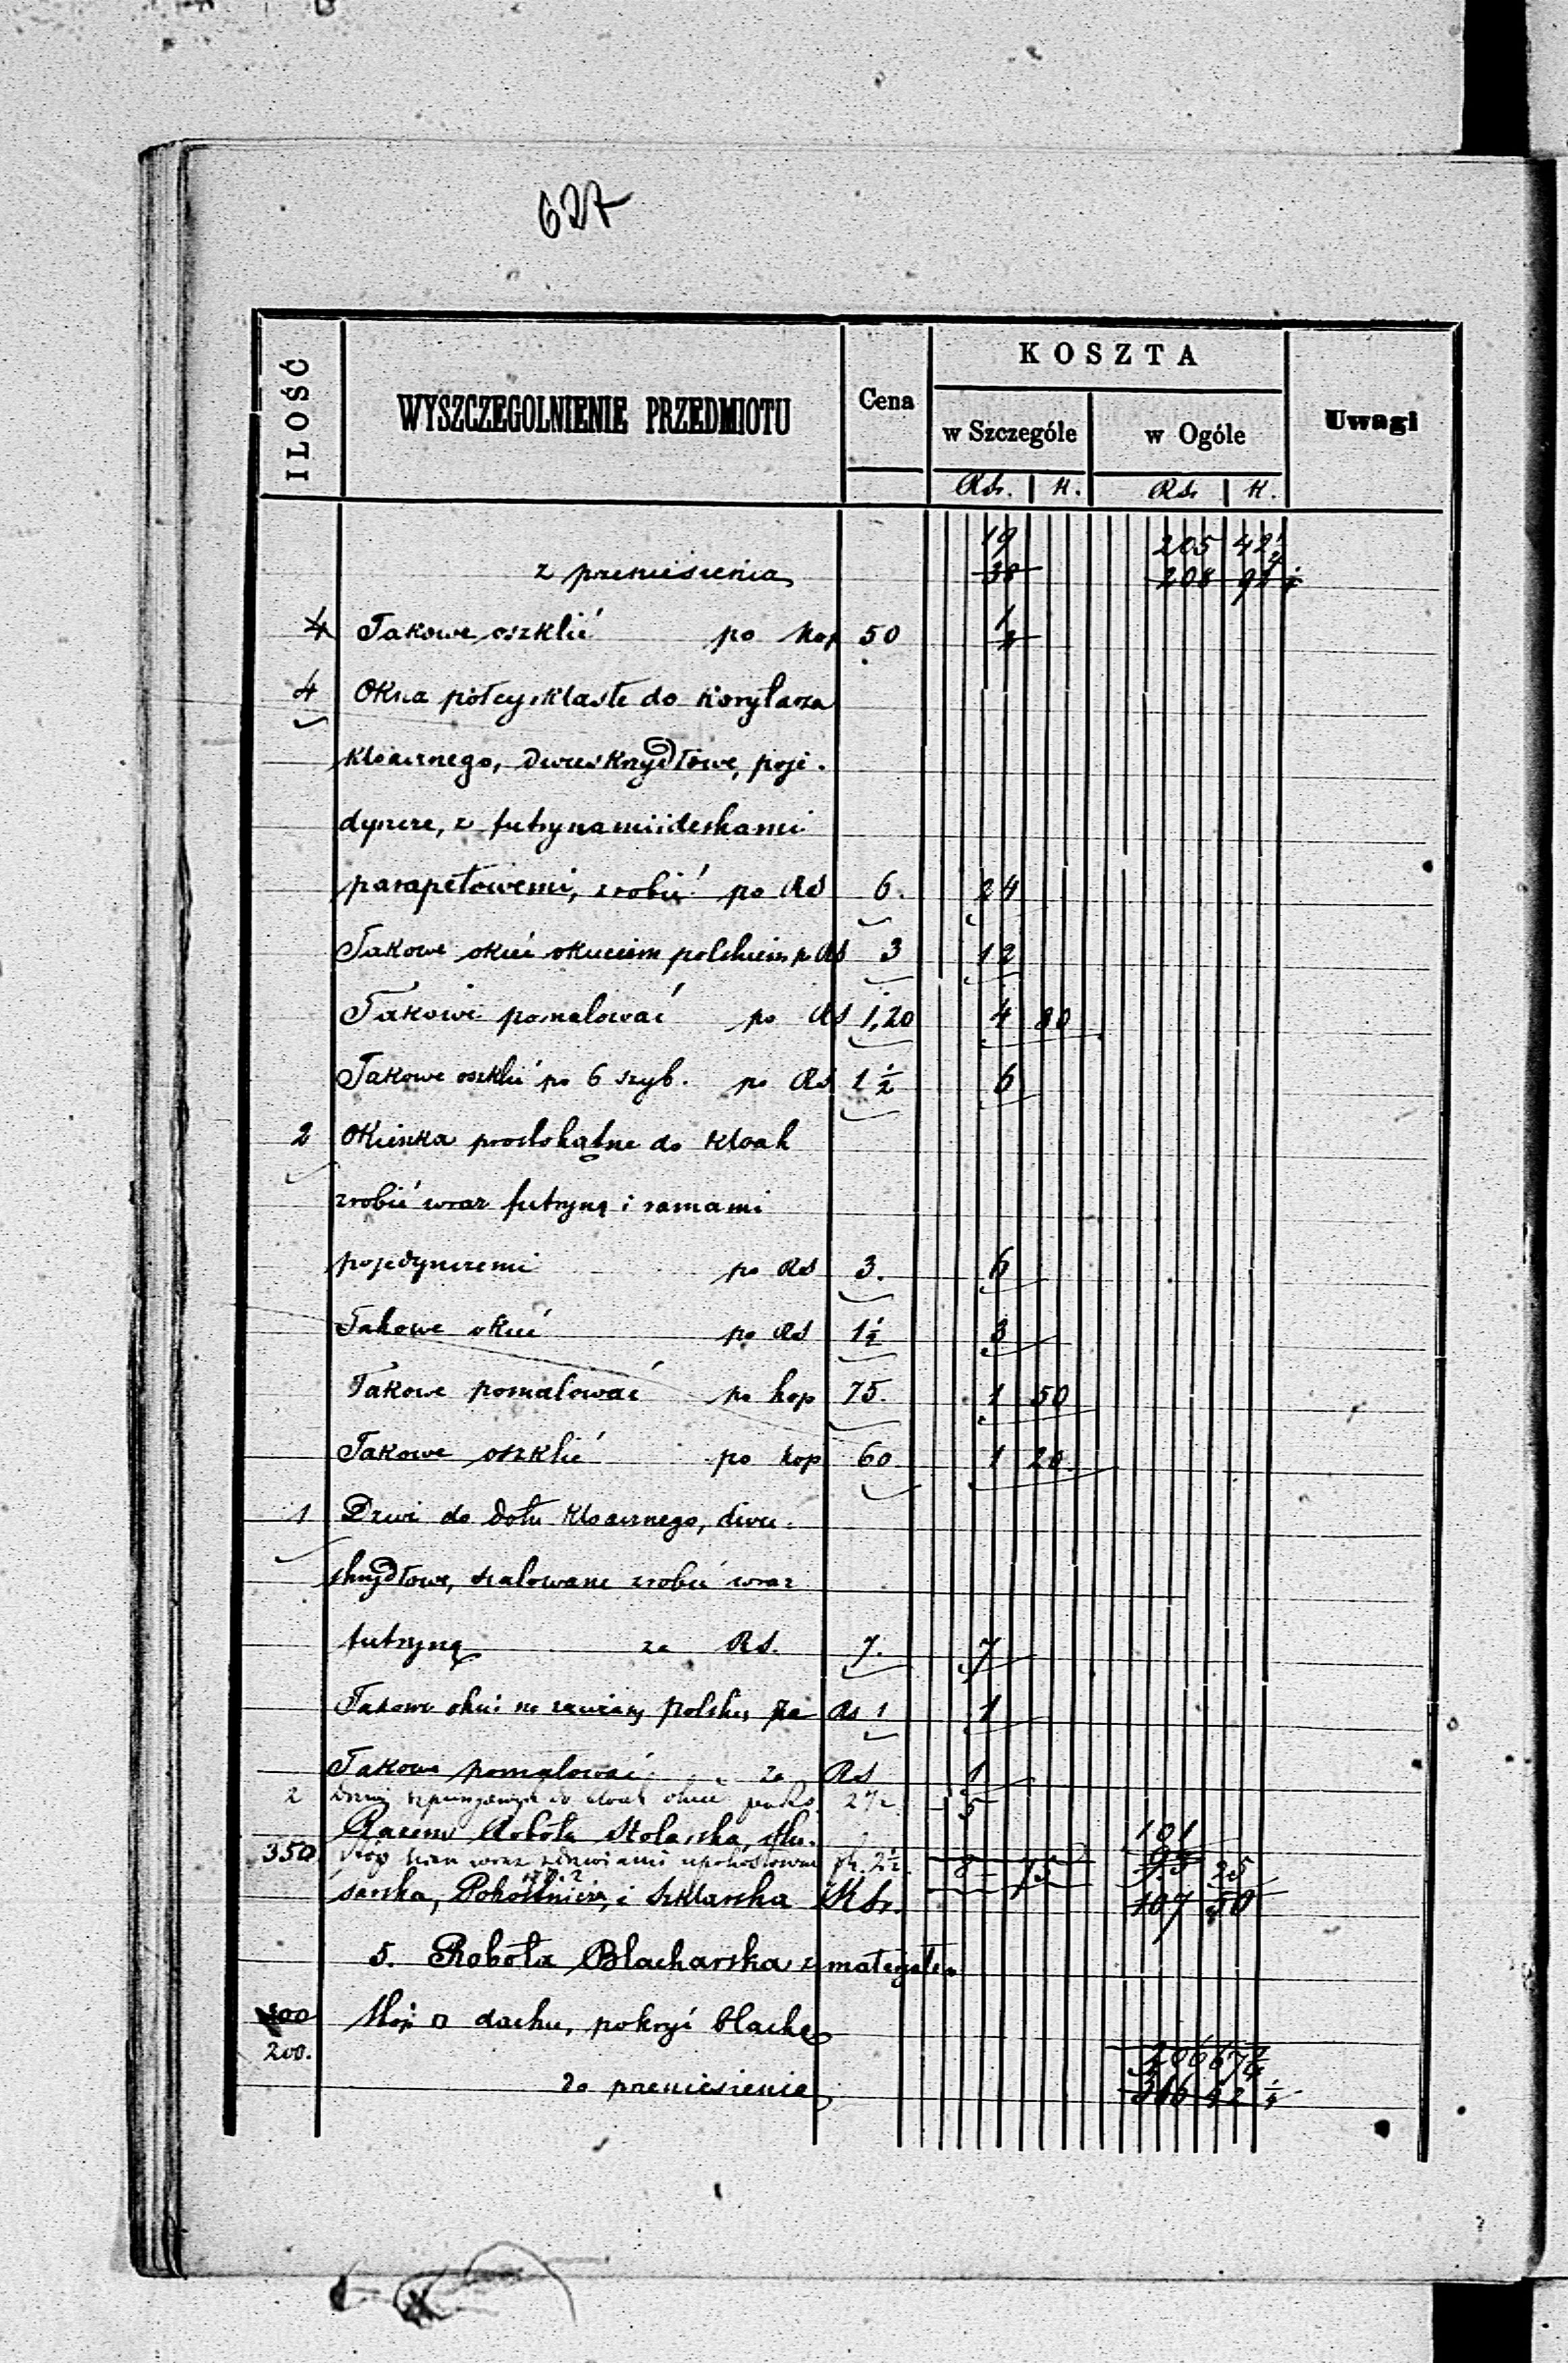 627
ILOŚĆ WYSZCZEGOLNIENIE PRZEDMIOTU Cena KOSZTA Uwagi
w Szczególe w Ogóle
Rs. K. Rs. K.
19 205 42
z przeniesienia 38 208
4 Takowe oszklić po kop 50 1
4 Okna półcyrklaste do korytarza
kloacznego, dwuskrzydłowe, poje-
dyncze, z futrynami i deskami
parapetowemi, zrobić po Rs 6. 24
Takowe okuć okuciem polskiem p Rs 3 12
Takowe pomalować po Rs 1,20 4 80
Takowe oszklić po 6 szyb. po Rs 1 1/2 6
2 Okienka prostokątne do kloak
zrobić wraz futryną i ramami
pojedynczemi po Rs 3. 6
Takowe okuć po Rs 1 1/2 3
Takowe pomalować po kop 75. 1 50
Takowe oszklić po kop 60 1 20
1 Drzwi do dołu kloacznego, dwu-
skrzydłowe, szalowane zrobić wraz
futryną za Rs. 7. 7
Takowe okuć na zawiasy polskie za Rs 1 1
Takowe pomalować za Rs 1
2 Drzwi do kloak okuć po Rs. 2 1/2 5
Razem Robota Stolarska, Ślu- 101
350 stóp ścian wraz z drzwiami upokostować pk. 2 1/2 8 75 95 25
sarska, Pokostnicza, i Szklarska Rs. 107 50
5. Robota Blacharska z materyałem
300 Stóp □ dachu, pokryć blachą
200. 306 67
do przeniesienia 316 42